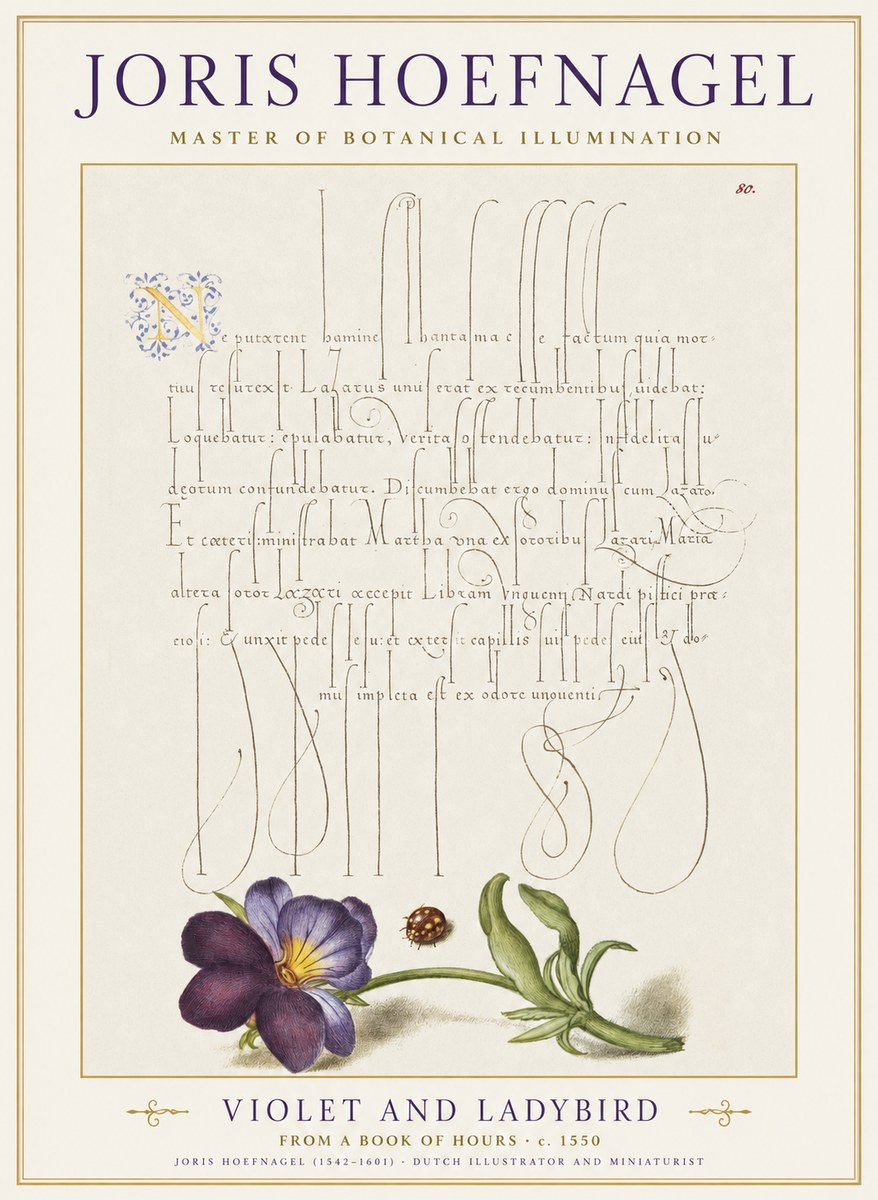 JORIS HOEFNAGEL
MASTER OF BOTANICAL ILLUMINATION
80.
Ne putarent homineſ phantaſma eſſe factum quia mor=
tuuſ reſurexit. Lazarus unuſ erat ex recumbentibuſ, uidebat:
Loquebatur: epulabatur, veritaſ oſtendebatur: Infidelitaſ Iu=
deorum confundebatur. Diſcumbebat ergo dominuſ cum Lazaro.
Et cæteriſ: miniſtrabat Martha vna ex ſororibuſ Lazari. Maria
altera ſoror Lazari accepit Libram vnguenti Nardi piſtici præ=
cioſi: & unxit pedeſ Ieſu: et exterſit capillis ſuiſ pedeſ eiuſ & do=
muſ impleta eſt ex odore unguenti
VIOLET AND LADYBIRD
FROM A BOOK OF HOURS · c. 1550
JORIS HOEFNAGEL (1542–1601) · DUTCH ILLUSTRATOR AND MINIATURIST